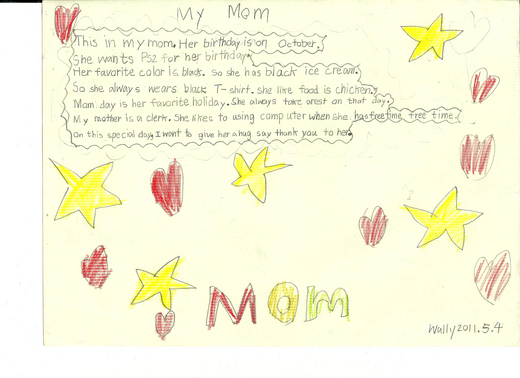 My Mom
This in my mom. Her birthday is on October.
She wants Ps2 for her birthday.
Her favorite color is black. So she has black ice cream.
So she always wears black T-shirt. she like food is chicken.
Mom day is her favorite holiday. She always take arest on that day.
My mother is a clerk. She likes to using computer when she has freetime free time.
On this special day, I want to give her a hug say thank you to her.
MOM
Wally 2011.5.4